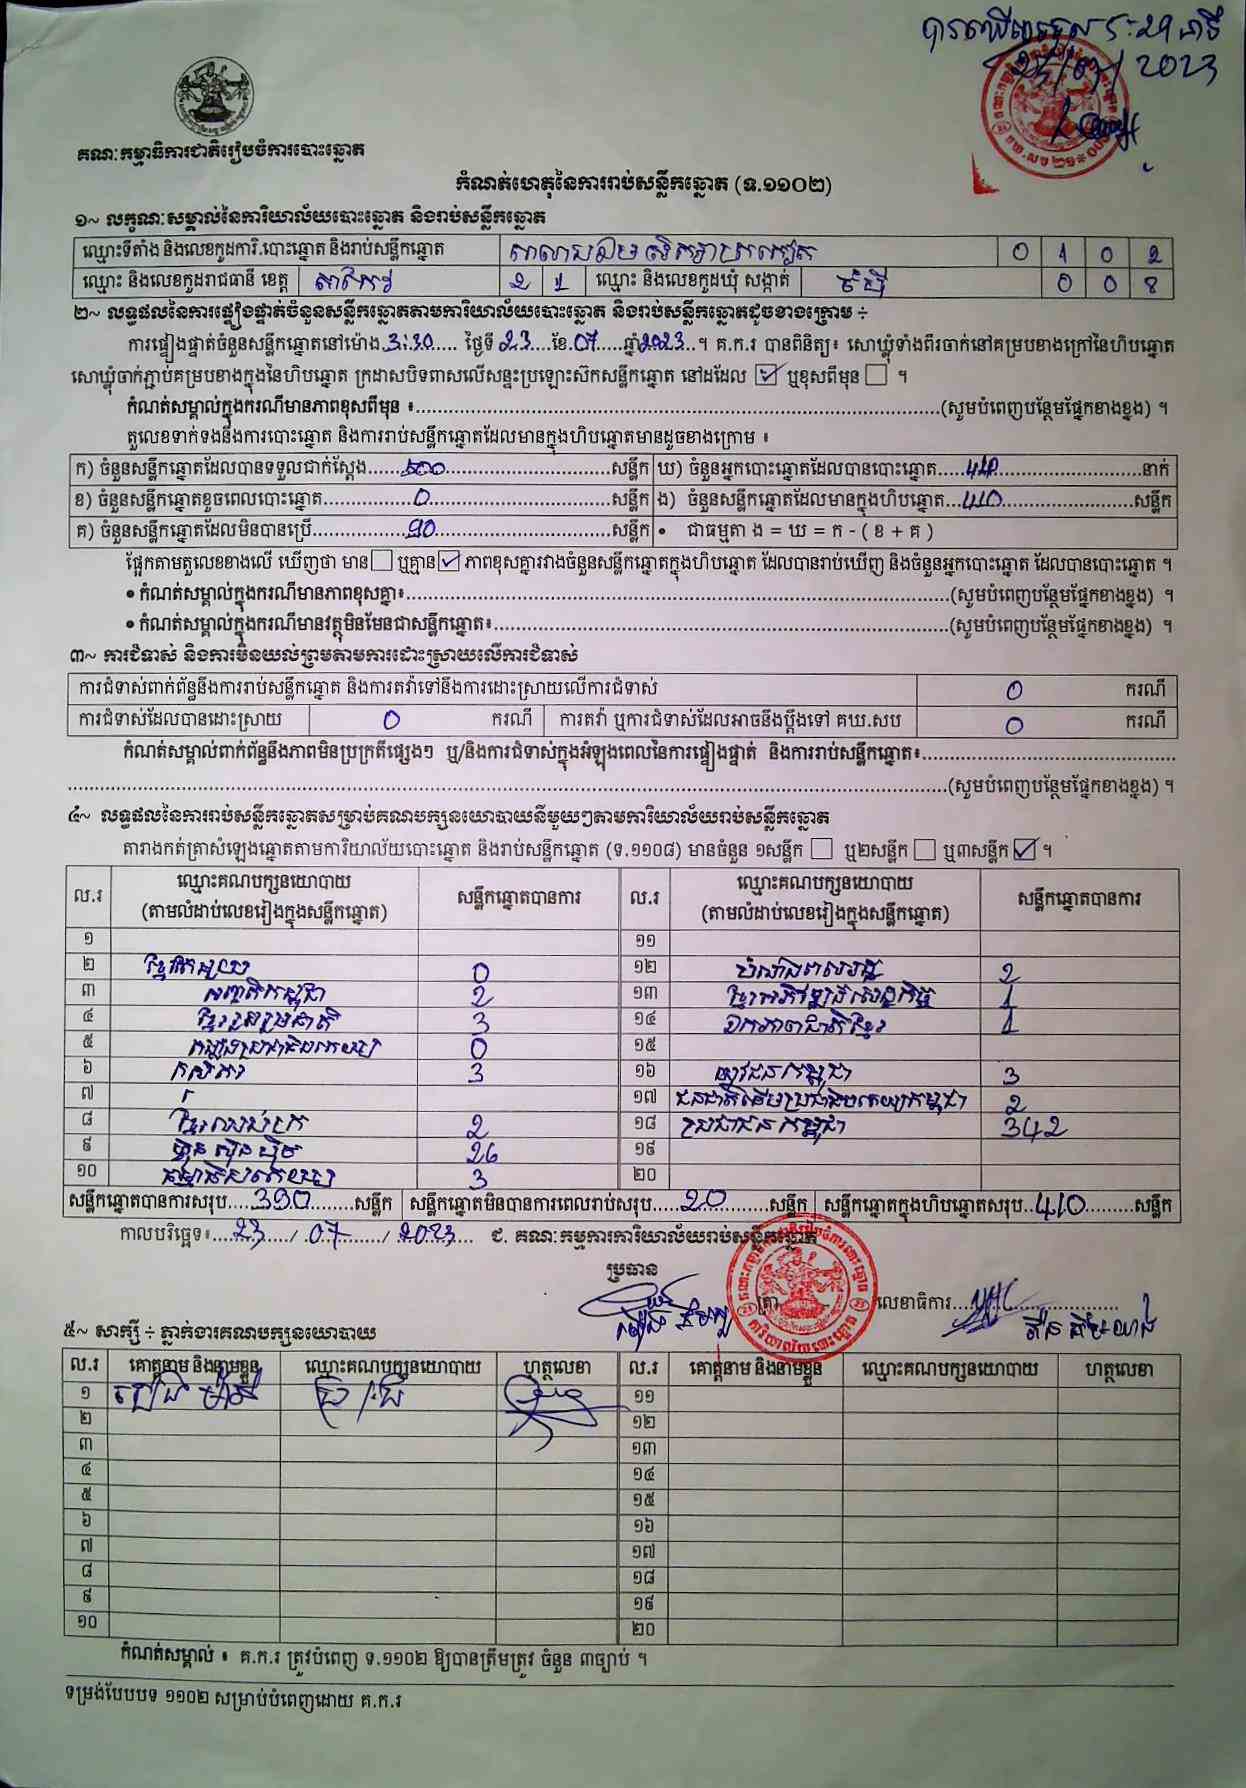 2023
គណៈកម្មាធិការជាតិរៀបចំការបោះឆ្នោត
កំណត់ហេតុនៃការរាប់សន្លឹកឆ្នោត (ទ.១១០២)
១~ លក្ខណៈសម្គាល់នៃការិយាល័យបោះឆ្នោត និងរាប់សន្លឹកឆ្នោត
ឈ្មោះទីតាំង និងលេខកូដការិ.បោះឆ្នោត និងរាប់សន្លឹកឆ្នោត 0 1 0 2
ឈ្មោះ និងលេខកូដរាជធានី ខេត្ត តាកែវ 2 1 ឈ្មោះ និងលេខកូដឃុំ សង្កាត់ 0 0 8
២~ លទ្ធផលនៃការផ្ទៀងផ្ទាត់ចំនួនសន្លឹកឆ្នោតតាមការិយាល័យបោះឆ្នោត និងរាប់សន្លឹកឆ្នោតដូចខាងក្រោម ÷
ការផ្ទៀងផ្ទាត់ចំនួនសន្លឹកឆ្នោតនៅម៉ោង 3:30 ថ្ងៃទី 23 ខែ 07 ឆ្នាំ 2023 ។ គ.ក.រ បានពិនិត្យ៖ សោឃ្លុំទាំងពីរចាក់នៅគម្របខាងក្រៅនៃហិបឆ្នោត
សោឃ្លុំចាក់ភ្ជាប់គម្របខាងក្នុងនៃហិបឆ្នោត ក្រដាសបិទពាសលើសន្ទះប្រឡោះស៊កសន្លឹកឆ្នោត នៅដដែល ☑ ឬខុសពីមុន ☐ ។
កំណត់សម្គាល់ក្នុងករណីមានភាពខុសពីមុន ៖ (សូមបំពេញបន្ថែមផ្នែកខាងខ្នង) ។
តួលេខទាក់ទងនឹងការបោះឆ្នោត និងការរាប់សន្លឹកឆ្នោតដែលមានក្នុងហិបឆ្នោតមានដូចខាងក្រោម ៖
ក) ចំនួនសន្លឹកឆ្នោតដែលបានទទួលជាក់ស្តែង 500 សន្លឹក ឃ) ចំនួនអ្នកបោះឆ្នោតដែលបានបោះឆ្នោត 410 នាក់
ខ) ចំនួនសន្លឹកឆ្នោតខូចពេលបោះឆ្នោត 0 សន្លឹក ង) ចំនួនសន្លឹកឆ្នោតដែលមានក្នុងហិបឆ្នោត 410 សន្លឹក
គ) ចំនួនសន្លឹកឆ្នោតដែលមិនបានប្រើ 90 សន្លឹក • ជាធម្មតា ង = ឃ = ក - ( ខ + គ )
ផ្អែកតាមតួលេខខាងលើ ឃើញថា មាន ☐ ឬគ្មាន ☑ ភាពខុសគ្នារវាងចំនួនសន្លឹកឆ្នោតក្នុងហិបឆ្នោត ដែលបានរាប់ឃើញ និងចំនួនអ្នកបោះឆ្នោត ដែលបានបោះឆ្នោត ។
• កំណត់សម្គាល់ក្នុងករណីមានភាពខុសគ្នា៖ (សូមបំពេញបន្ថែមផ្នែកខាងខ្នង) ។
• កំណត់សម្គាល់ក្នុងករណីមានវត្ថុមិនមែនជាសន្លឹកឆ្នោត៖ (សូមបំពេញបន្ថែមផ្នែកខាងខ្នង) ។
៣~ ការជំទាស់ និងការមិនយល់ព្រមតាមការដោះស្រាយលើការជំទាស់
ការជំទាស់ពាក់ព័ន្ធនឹងការរាប់សន្លឹកឆ្នោត និងការតវ៉ាទៅនឹងការដោះស្រាយលើការជំទាស់ 0 ករណី
ការជំទាស់ដែលបានដោះស្រាយ 0 ករណី ការតវ៉ា ឬការជំទាស់ដែលអាចនឹងប្តឹងទៅ គឃ.សប 0 ករណី
កំណត់សម្គាល់ពាក់ព័ន្ធនឹងភាពមិនប្រក្រតីផ្សេងៗ ឬ/និងការជំទាស់ក្នុងអំឡុងពេលនៃការផ្ទៀងផ្ទាត់ និងការរាប់សន្លឹកឆ្នោត៖
(សូមបំពេញបន្ថែមផ្នែកខាងខ្នង) ។
៤~ លទ្ធផលនៃការរាប់សន្លឹកឆ្នោតសម្រាប់គណបក្សនយោបាយនីមួយៗតាមការិយាល័យរាប់សន្លឹកឆ្នោត
តារាងកត់ត្រាសំឡេងឆ្នោតតាមការិយាល័យបោះឆ្នោត និងរាប់សន្លឹកឆ្នោត (ទ.១១០៨) មានចំនួន ១សន្លឹក ☐ ឬ២សន្លឹក ☐ ឬ៣សន្លឹក ☑ ។
ល.រ ឈ្មោះគណបក្សនយោបាយ (តាមលំដាប់លេខរៀងក្នុងសន្លឹកឆ្នោត) សន្លឹកឆ្នោតបានការ ល.រ ឈ្មោះគណបក្សនយោបាយ (តាមលំដាប់លេខរៀងក្នុងសន្លឹកឆ្នោត) សន្លឹកឆ្នោតបានការ
១ ១១
២ ខ្មែរតែមួយ 0 ១២ 2
៣ សញ្ជាតិកម្ពុជា 2 ១៣ ខ្មែរអភិវឌ្ឍន៍សេដ្ឋកិច្ច 1
៤ ខ្មែររួបរួមជាតិ 3 ១៤ ឯកភាពជាតិខ្មែរ 1
៥ 0 ១៥
៦ កសិករ 3 ១៦ យុវជនកម្ពុជា 3
៧ ១៧ ជនជាតិដើមប្រជាធិបតេយ្យកម្ពុជា 2
៨ 2 ១៨ ប្រជាជនកម្ពុជា 342
៩ ហ៊្វុនស៊ិនប៉ិច 26 ១៩
១០ ធម្មាធិបតេយ្យ 3 ២០
សន្លឹកឆ្នោតបានការសរុប 390 សន្លឹក សន្លឹកឆ្នោតមិនបានការពេលរាប់សរុប 20 សន្លឹក សន្លឹកឆ្នោតក្នុងហិបឆ្នោតសរុប 410 សន្លឹក
កាលបរិច្ឆេទ៖ 23 / 07 / 2023 ជ. គណៈកម្មការការិយាល័យរាប់សន្លឹកឆ្នោត
ប្រធាន
ត្រា លេខាធិការ
៥~ សាក្សី ÷ ភ្នាក់ងារគណបក្សនយោបាយ
ល.រ គោត្តនាម និងនាមខ្លួន ឈ្មោះគណបក្សនយោបាយ ហត្ថលេខា ល.រ គោត្តនាម និងនាមខ្លួន ឈ្មោះគណបក្សនយោបាយ ហត្ថលេខា
១ ១១
២ ១២
៣ ១៣
៤ ១៤
៥ ១៥
៦ ១៦
៧ ១៧
៨ ១៨
៩ ១៩
១០ ២០
កំណត់សម្គាល់ ៖ គ.ក.រ ត្រូវបំពេញ ទ.១១០២ ឱ្យបានត្រឹមត្រូវ ចំនួន ៣ច្បាប់ ។
ទម្រង់បែបបទ ១១០២ សម្រាប់បំពេញដោយ គ.ក.រ